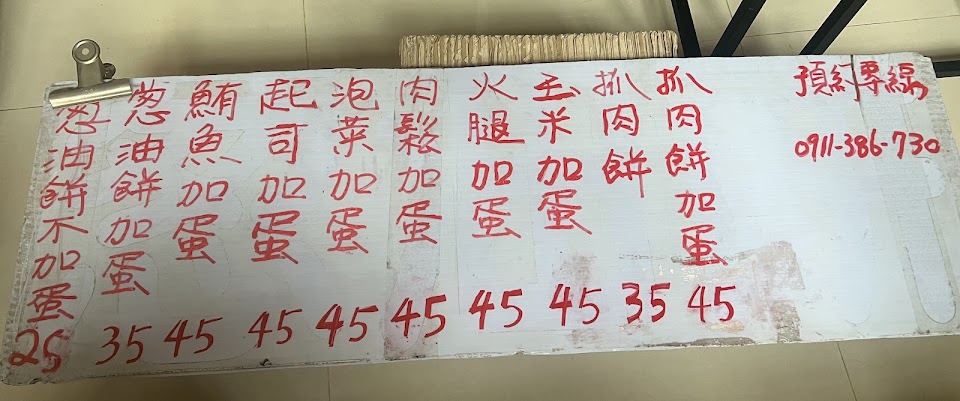 葱油餅不加蛋 25
葱油餅加蛋 35
鮪魚加蛋 45
起司加蛋 45
泡菜加蛋 45
肉鬆加蛋 45
火腿加蛋 45
玉米加蛋 45
抓肉餅 35
抓肉餅加蛋 45
預約專線
0911-386-730